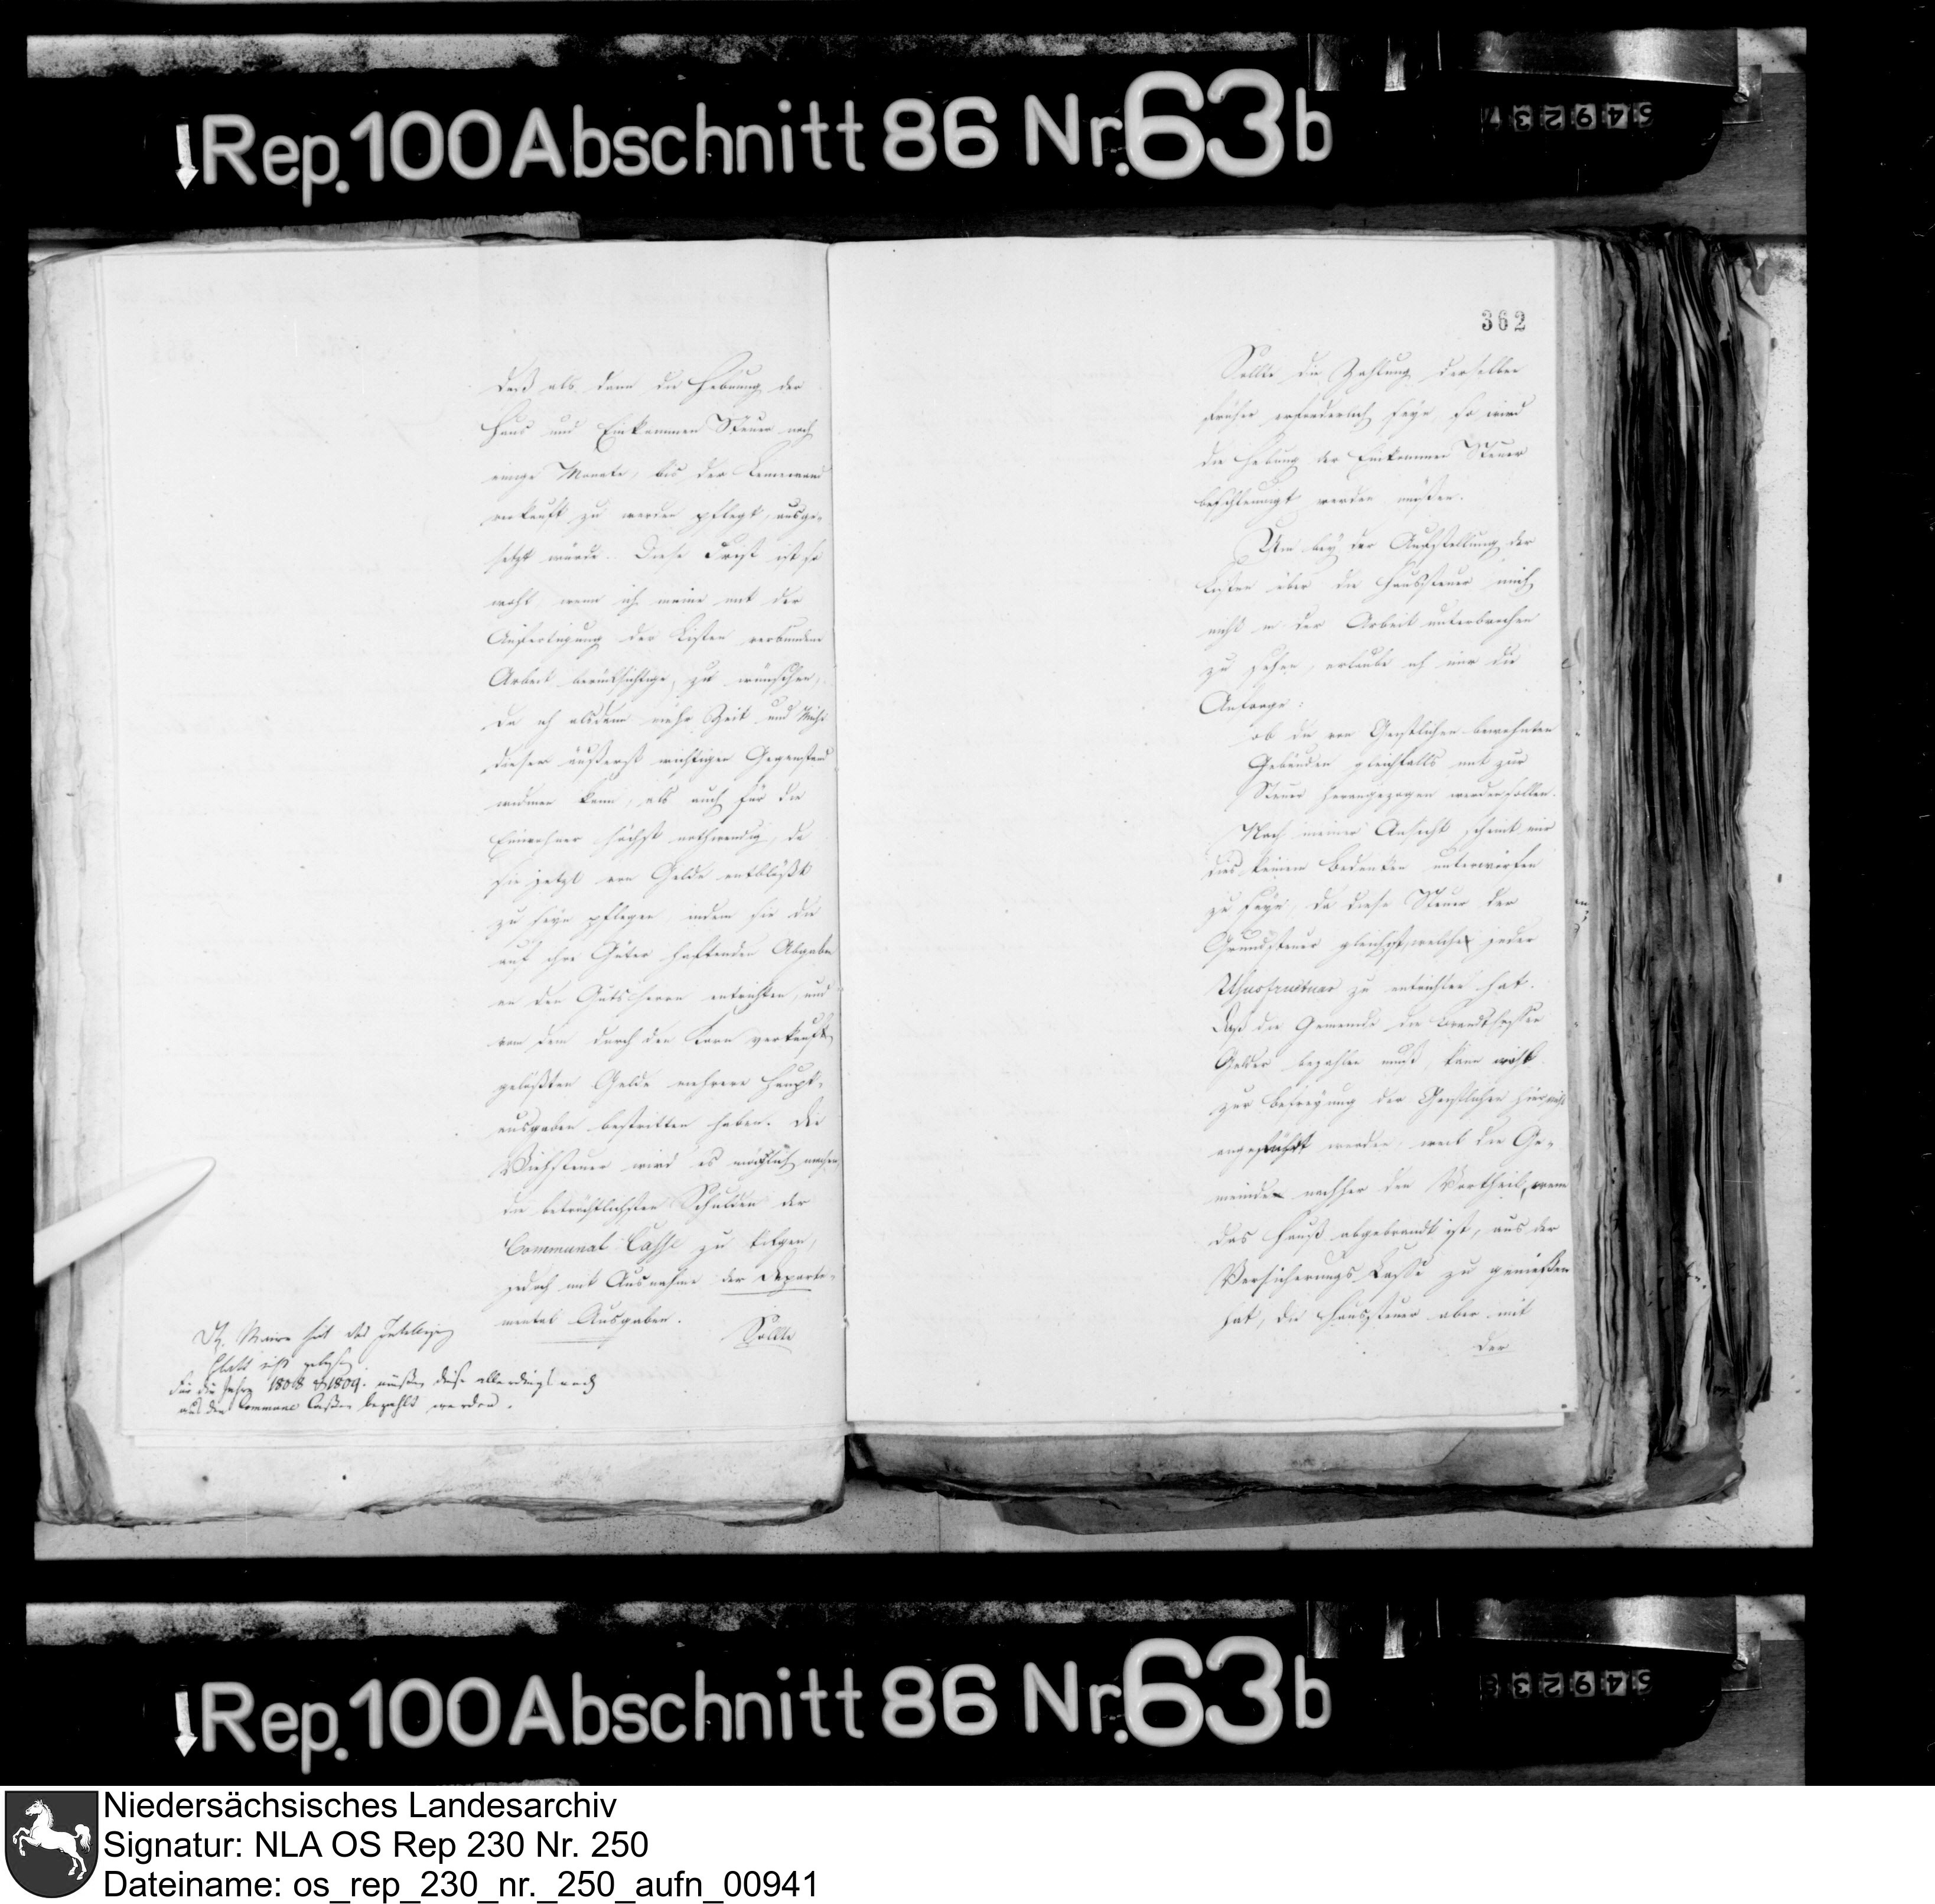 Rep. 100 Abschnitt 86 Nr. 63b
549237
daß als dann die Hebung der
Haus und Einkommen Steuer noch
einige Monate, bis der Leinewand
verkauft zu werden pflegt, ausge-
setzt würde. Diese Frist ist so
wohl wenn ich meine mit der
Anfertigung der Listen verbundene
Arbeit berücksichtige, zu wünschen,
da ich alsdann mehr Zeit und Mühe
dieser äußerst wichtigen Gegenstand
widmen kann, als auch für die
Einwohner höchst nothwendig, da
sie jetzt von Gelde entblößt
zu seyn pflegen indem sie die
auf ihre Güter haftenden Abgaben
an den Gutsherrn entrichten, und
von dem durch den Korn verkauft
gelößten Gelde mehrere Haupt-
ausgaben bestritten haben. Die
Viehsteuer wird es möglich machen
die beträchtlichsten Schulden der
Communal Casse zu tilgen,
jedoch mit Ausnahme der Departe-
mental Ausgaben.
Sollte
Maire hat das
Blatt nicht gelesen.
Für die Jahre 1808 & 1809. müßen diese allerdings noch
aus den Commune Caßen bezahlt werden.
362
Sollte die Zahlung derselben
früher erforderlich seyn so wird
die Hebung der Einkommen Steuer
beschleunigt werden müßen.
Um bey der Aufstellung der
Listen über die Haussteuer mich
nicht in der Arbeit unterbrochen
zu sehen, erlaube ich mir die
Anfrage:
ob die von Geistlichen bewohnten
Gebäuden gleichfalls mit zur
Steuer herangezogen werden sollen.
Nach meiner Ansicht scheint mir
dies keinem Bedenken unterworfen
zu seyn, da diese Steuer der
Grundsteuer gleich ist, welche jeder
Usufructuar zu entrichten hat.
Daß die Gemeinde die
Gelder bezahlen muß, kann wohl
zur Befreyung der Geistlichen hier nicht
angeführt werden, weil die Ge-
meinde nachher den Vortheil, wenn
das Hauß abgebrandt ist, aus der
Versicherungs Casse zu genießen
hat, die Haussteuer aber mit
der
Rep. 100 Abschnitt 86 Nr. 63b
549238
Niedersächsisches Landesarchiv
Signatur: NLA OS Rep 230 Nr. 250
Dateiname: os_rep_230_nr._250_aufn_00941